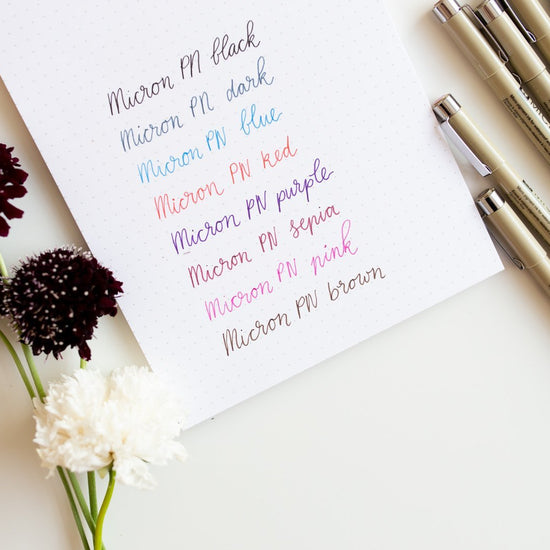 Micron PN black
Micron PN dark
Micron PN blue
Micron PN red
Micron PN purple
Micron PN sepia
Micron PN pink
Micron PN brown